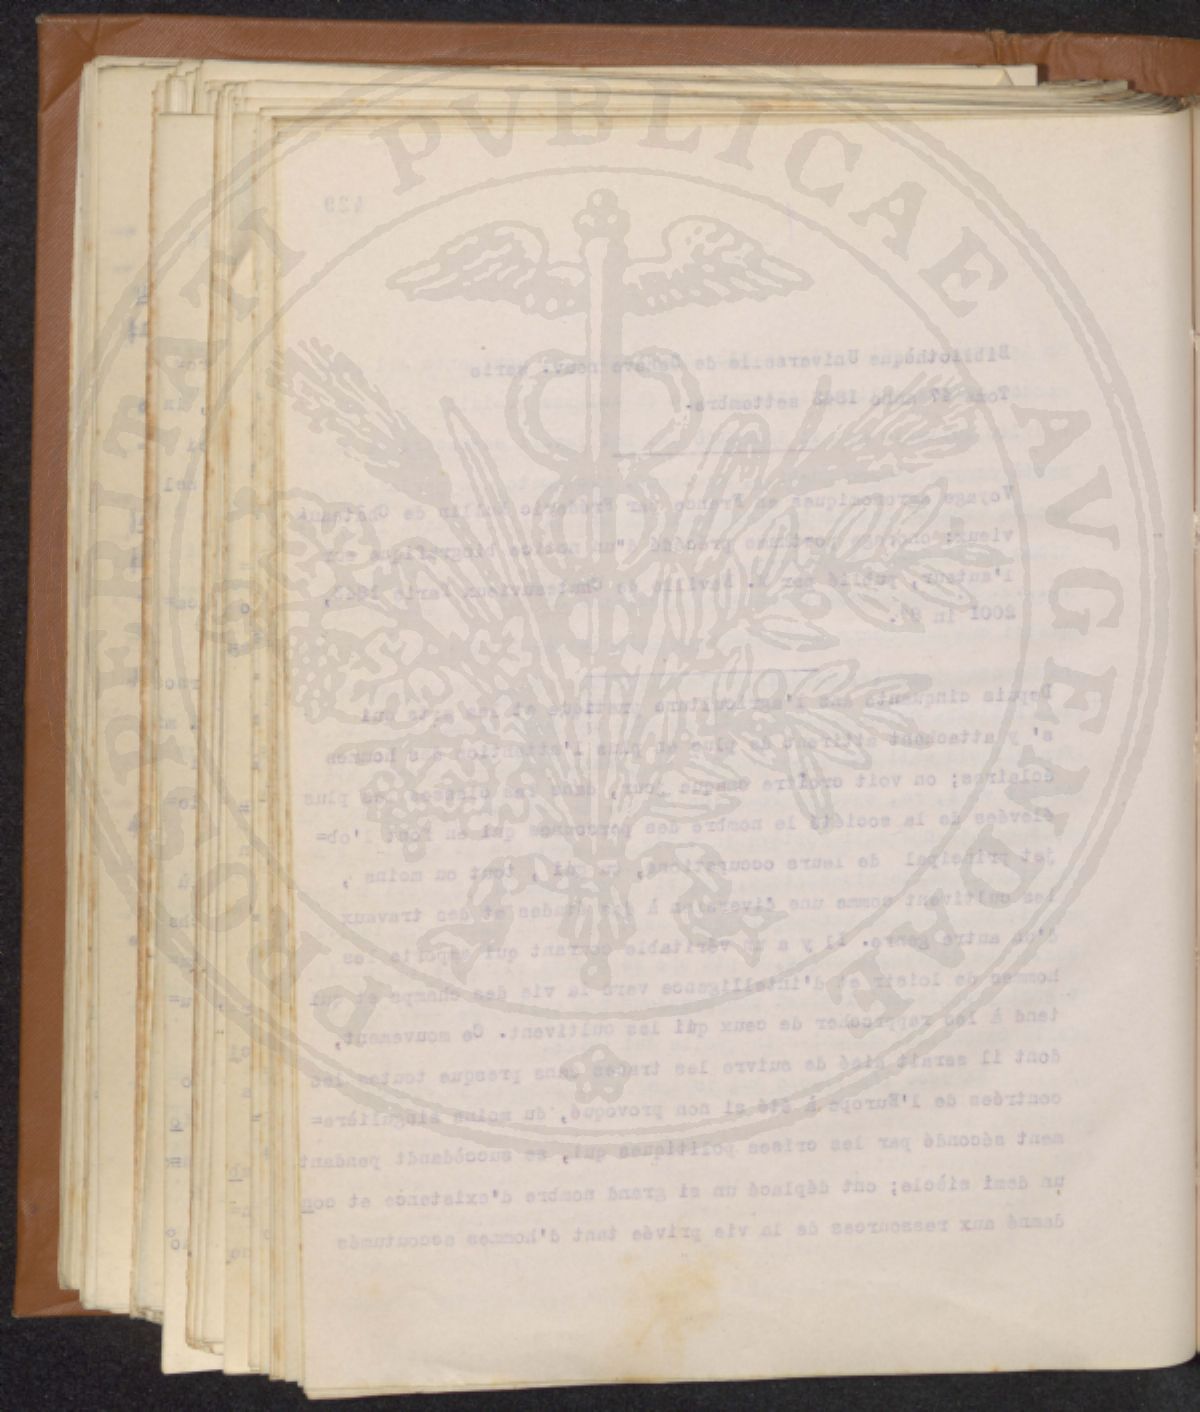 429
Bibliothèque Universelle de Genève nouv. serie
Tome 47 1843 settembre.
Voyage agronomiques en France par Frédéric Lullin de Château=
vieux; ouvrage posthume précédé d'un notice biografique sur
l'auteur, publié par Naville de Chateauvieux Paris 1843,
200I in 8°.
Depuis cinquante ans l'agriculture pratique et les arts qui
s' y attachent attirent de plus en plus l'attention des hommes
éclairés; on voit croître chaque jour, dans les classes les plus
élevées de la société le nombre des personnes qui en font l'ob=
jet principal de leurs occupations, ou qui , tout ou moins ,
les cultivent comme une diversion à des études et des travaux
d'un autre genre. Il y a un véritable courant qui emporte les
hommes de loisir et d'intelligence vers la vie des champs et qui
tend à les rapprocher de ceux qui les cultivent. Ce mouvement,
dont il serait aisé de suivre les traces dans presque toutes les
contrées de l'Europe à été si non provoqué, du moins singulière=
ment sécondé par les crises politiques qui, se succèdandt pendant
un demi siècle; ont déplacé un si grand nombre d'existence et con
damné aux ressources de la vie privée tant d'hommes accoutumés
PROSPERITATI PVBLICAE AVGENDAE